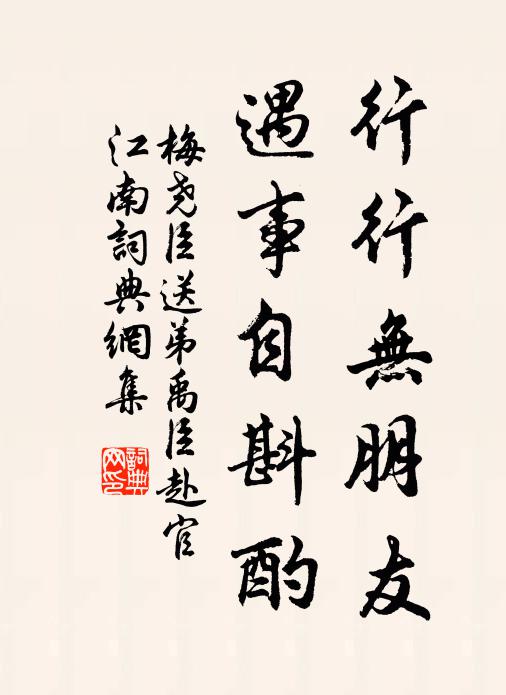 行行無朋友
遇事自斟酌
梅尧臣送弟禹臣赴官
江南詞典網集
詞典网印